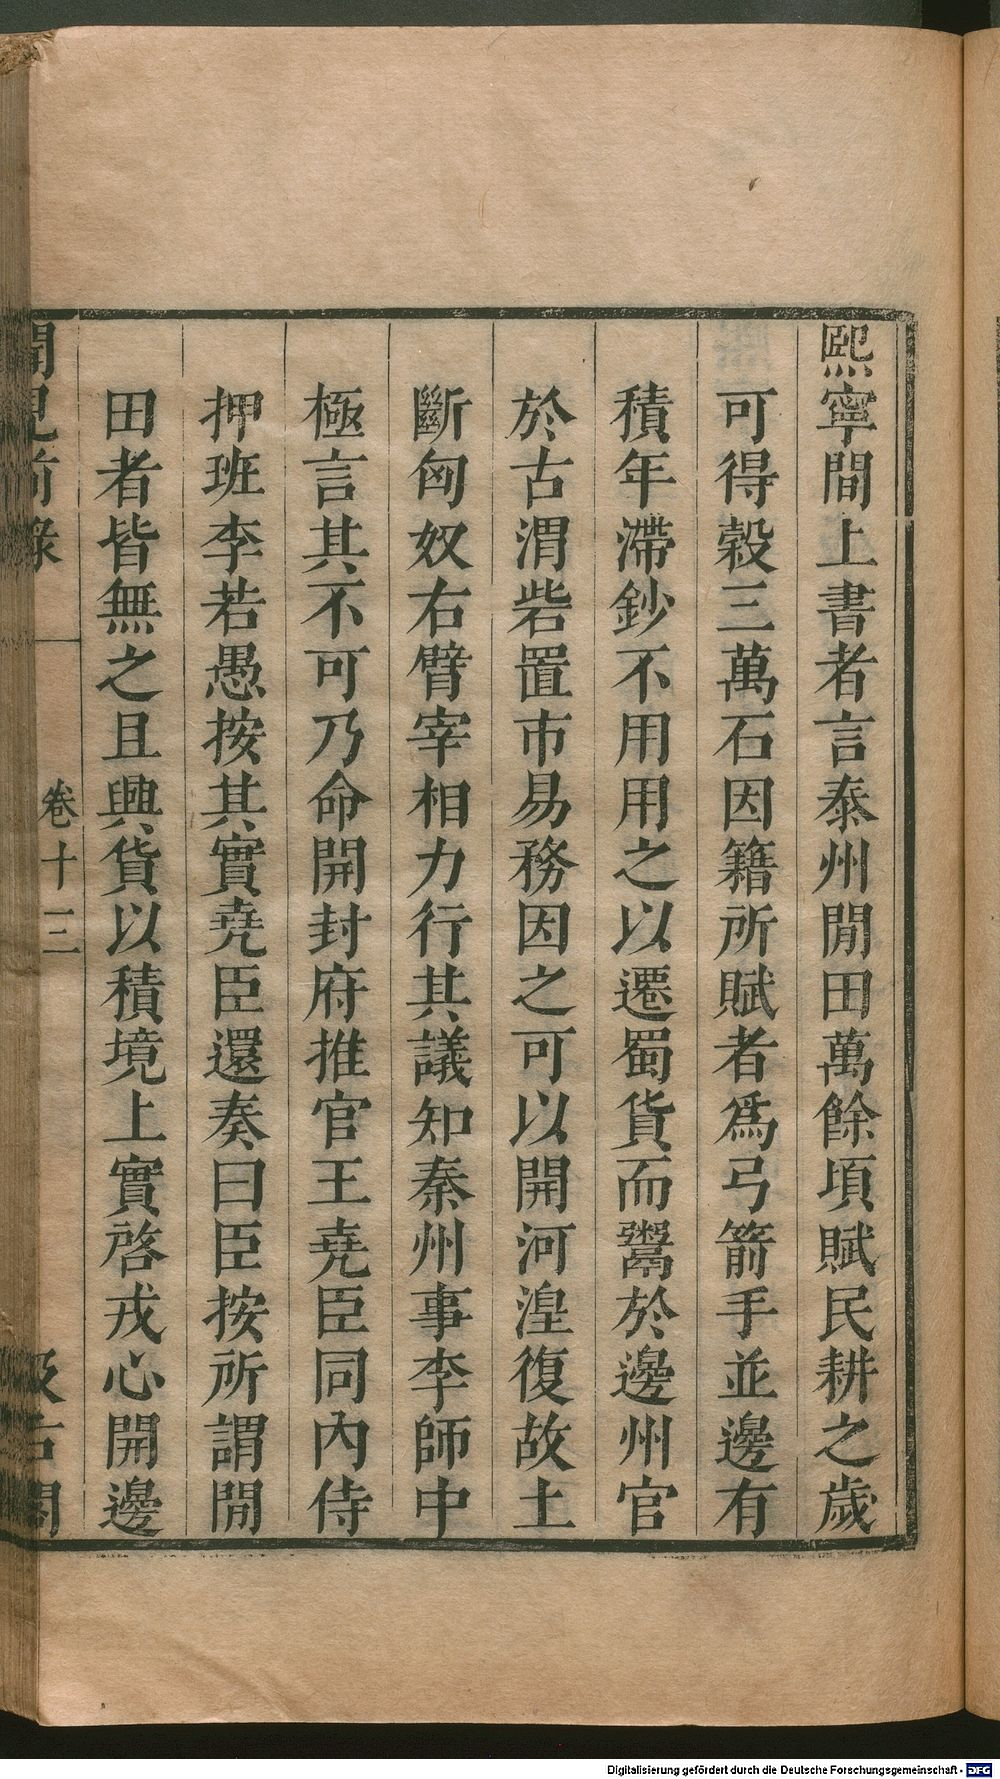 熙寧間上書者言泰州閒田萬餘頃賦民耕之歲
可得穀三萬石因籍所賦者爲弓箭手並邊有
積年滯鈔不用用之以遷蜀貨而鬻於邊州官
於古渭砦置市易務因之可以開河湟復故土
斷匈奴右臂宰相力行其議知秦州事李師中
極言其不可乃命開封府推官王堯臣同內侍
押班李若愚按其實堯臣還奏曰臣按所謂閒
田者皆無之且興貨以積境上實啓戎心開邊
聞見前錄
卷十三
汲古閣
Digitalisierung gefördert durch die Deutsche Forschungsgemeinschaft - DFG